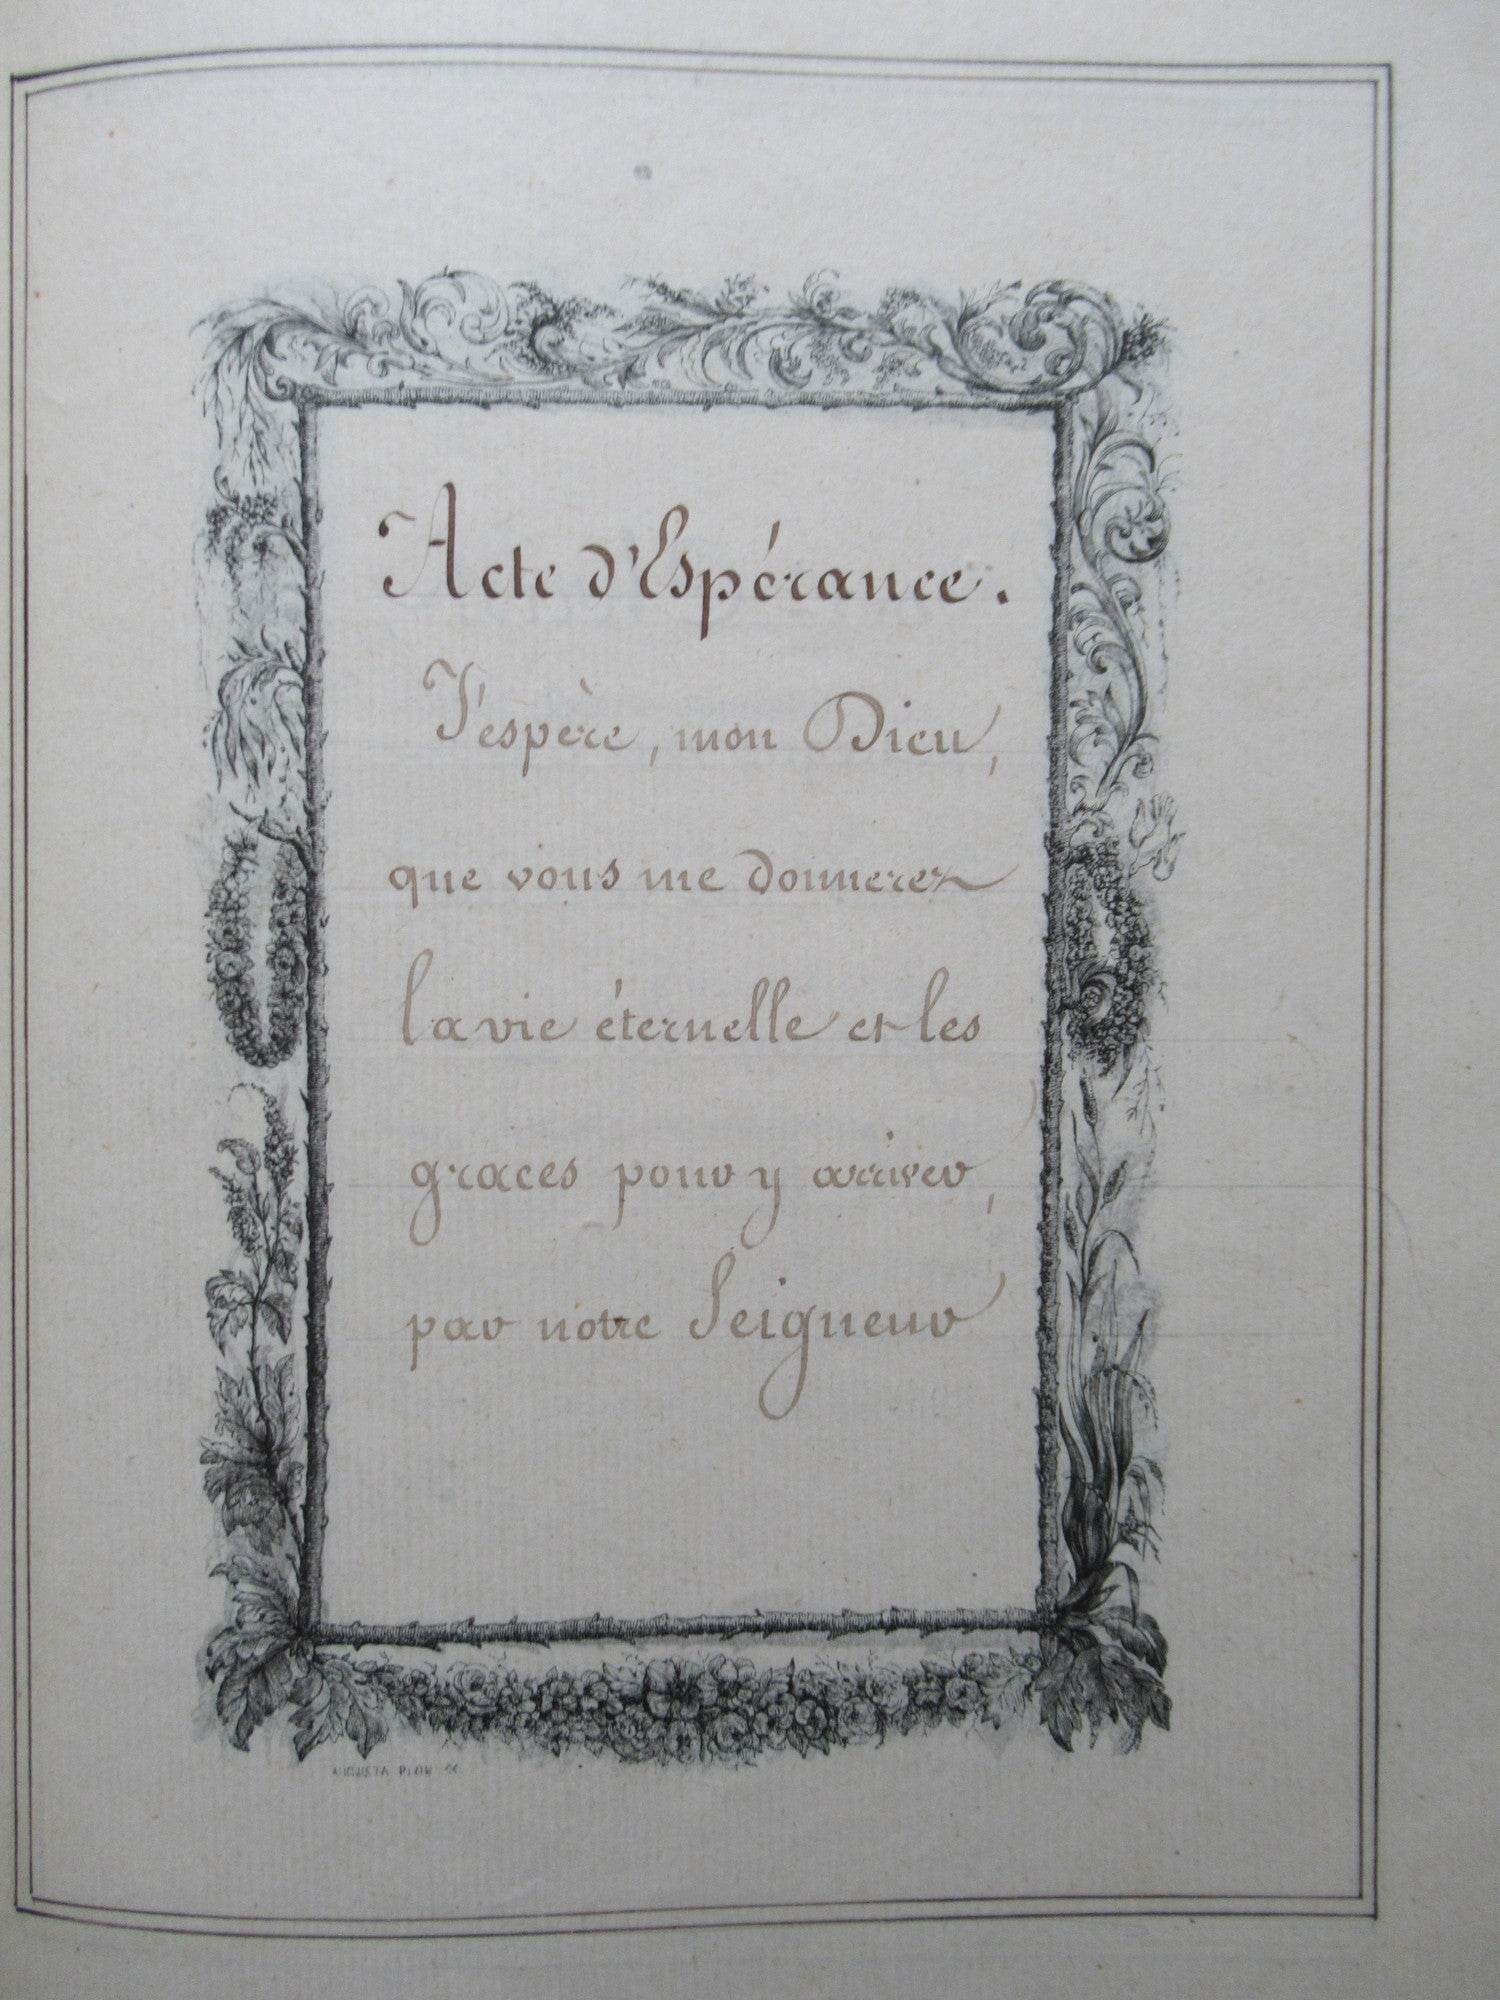 Acte d'Espérance.
J'espère, mon Dieu,
que vous me donnerez
la vie éternelle et les
graces pour y arriver,
par notre Seigneur
AUGUSTA PLON SC